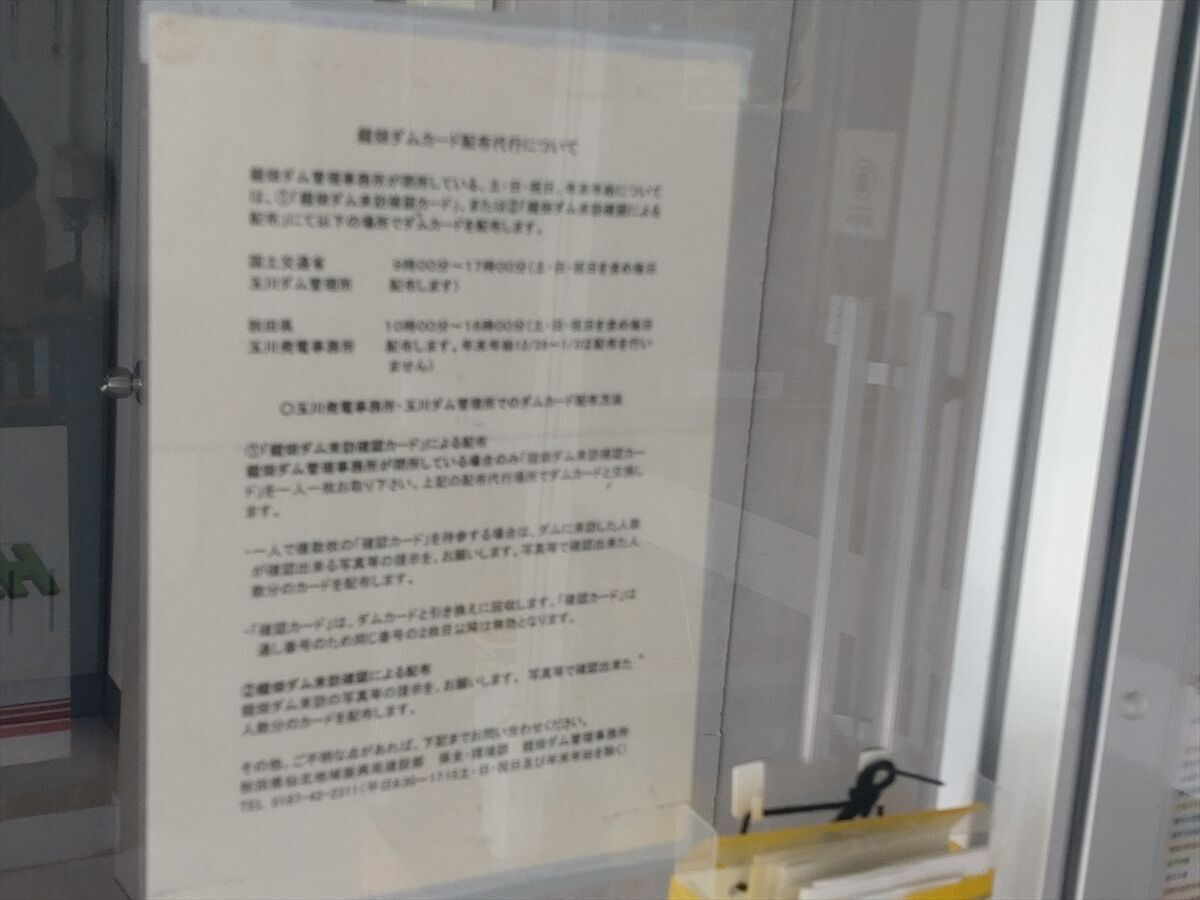 鎧畑ダムカード配布代行について
鎧畑ダム管理事務所が閉所している、土・日・祝日、年末年始について
は、①「鎧畑ダム来訪確認カード」、または②「鎧畑ダム来訪確認による
配布」にて以下の場所でダムカードを配布します。
国土交通省 9時00分～17時00分(土・日・祝日を含め毎日
玉川ダム管理所 配布します)
秋田県 10時00分～16時00分(土・日・祝日を含め毎日
玉川発電事務所 配布します。年末年始12/29～1/3は配布を行い
ません)
○玉川発電事務所・玉川ダム管理所でのダムカード配布方法
①「鎧畑ダム来訪確認カード」による配布
鎧畑ダム管理事務所が閉所している場合のみ「鎧畑ダム来訪確認カー
ド」を一人一枚お取り下さい。上記の配布代行場所でダムカードと交換し
ます。
・一人で複数枚の「確認カード」を持参する場合は、ダムに来訪した人数
が確認出来る写真等の提示を、お願いします。写真等で確認出来た人
数分のカードを配布します。
・「確認カード」は、ダムカードと引き換えに回収します。「確認カード」は
通し番号のため同じ番号の2枚目以降は無効となります。
②鎧畑ダム来訪確認による配布
鎧畑ダム来訪の写真等の提示を、お願いします。写真等で確認出来た
人数分のカードを配布します。
その他、ご不明な点があれば、下記までお問い合わせください。
秋田県仙北地域振興局建設部 保全・環境課 鎧畑ダム管理事務所
TEL 0187-42-2311(平日8:30～17:15土・日・祝日及び年末年始を除く)